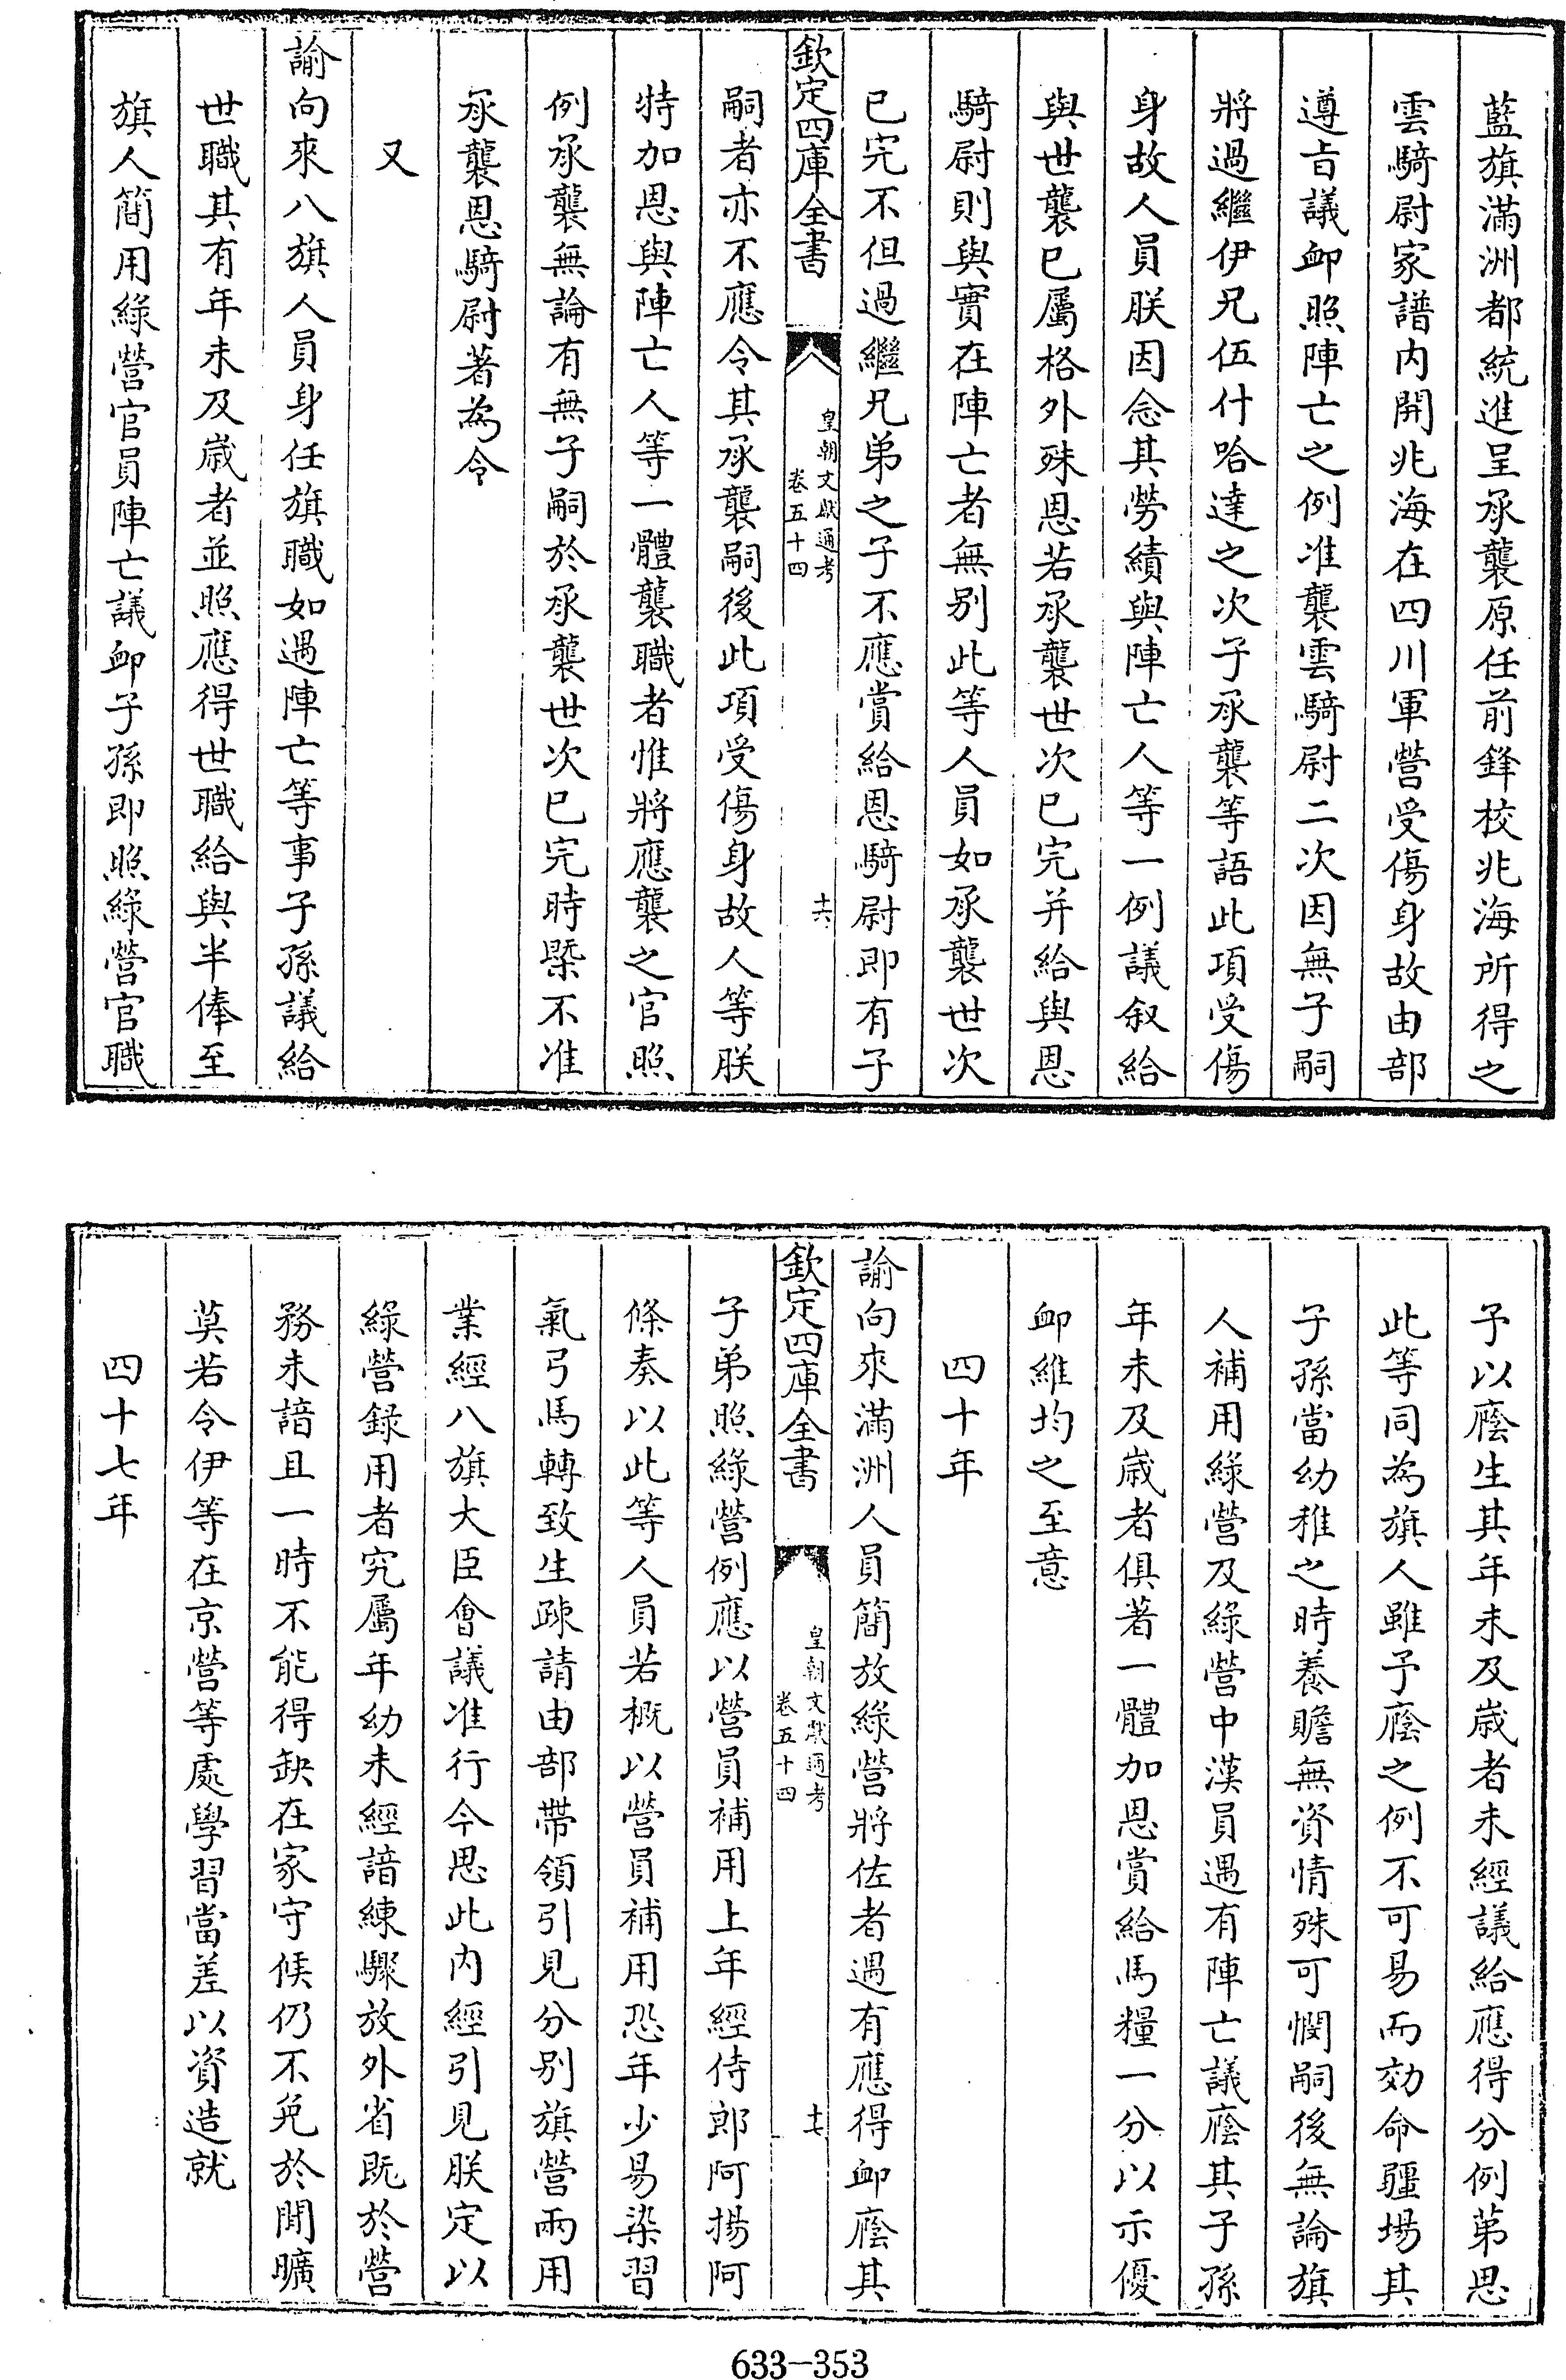 藍旗滿洲都統進呈承襲原任前鋒校兆海所得之
雲騎尉家譜内開兆海在四川軍營受傷身故由部
遵㫖議卹照陣亡之例准襲雲騎尉二次因無子嗣
將過繼伊兄伍什哈達之次子承襲等語此項受傷
身故人員朕因念其勞績與陣亡人等一例議叙給
與世襲已屬格外殊恩若承襲世次已完并給與恩
騎尉則與實在陣亡者無别此等人員如承襲世次
已完不但過繼兄弟之子不應賞給恩騎尉即有子
欽定四庫全書
皇朝文獻通考
卷五十四
十六
嗣者亦不應令其承襲嗣後此項受傷身故人等朕
特加恩與陣亡人等一體襲職者惟將應襲之官照
例承襲無論有無子嗣於承襲世次已完時槩不准
承襲恩騎尉著為令
又
諭向來八旗人員身任旗職如遇陣亡等事子孫議給
世職其有年未及嵗者並照應得世職給與半俸至
旗人簡用綠營官員陣亡議卹子孫即照綠營官職
予以廕生其年未及嵗者未經議給應得分例第思
此等同為旗人雖予廕之例不可易而効命疆埸其
子孫當幼稚之時養贍無資情殊可憫嗣後無論旗
人補用綠營及綠營中漢員遇有陣亡議廕其子孫
年未及嵗者俱著一體加恩賞給馬糧一分以示優
卹維均之至意
四十年
諭向來滿洲人員簡放綠營將佐者遇有應得卹廕其
欽定四庫全書
皇朝文獻通考
卷五十四
十七
子弟照綠營例應以營員補用上年經侍郎阿揚阿
條奏以此等人員若概以營員補用恐年少易染習
氣弓馬轉致生疎請由部帶領引見分别旗營兩用
業經八旗大臣會議准行今思此内經引見朕定以
綠營録用者究屬年幼未經諳練驟放外省既於營
務未諳且一時不能得缺在家守候仍不免於閒曠
莫若令伊等在京營等處學習當差以資造就
四十七年
633-353